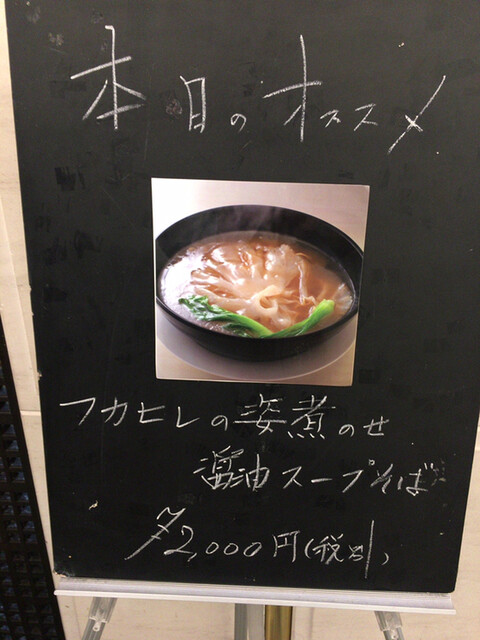 本日のオススメ
フカヒレの姿煮のせ
醤油スープそば
¥2,000円(税別)